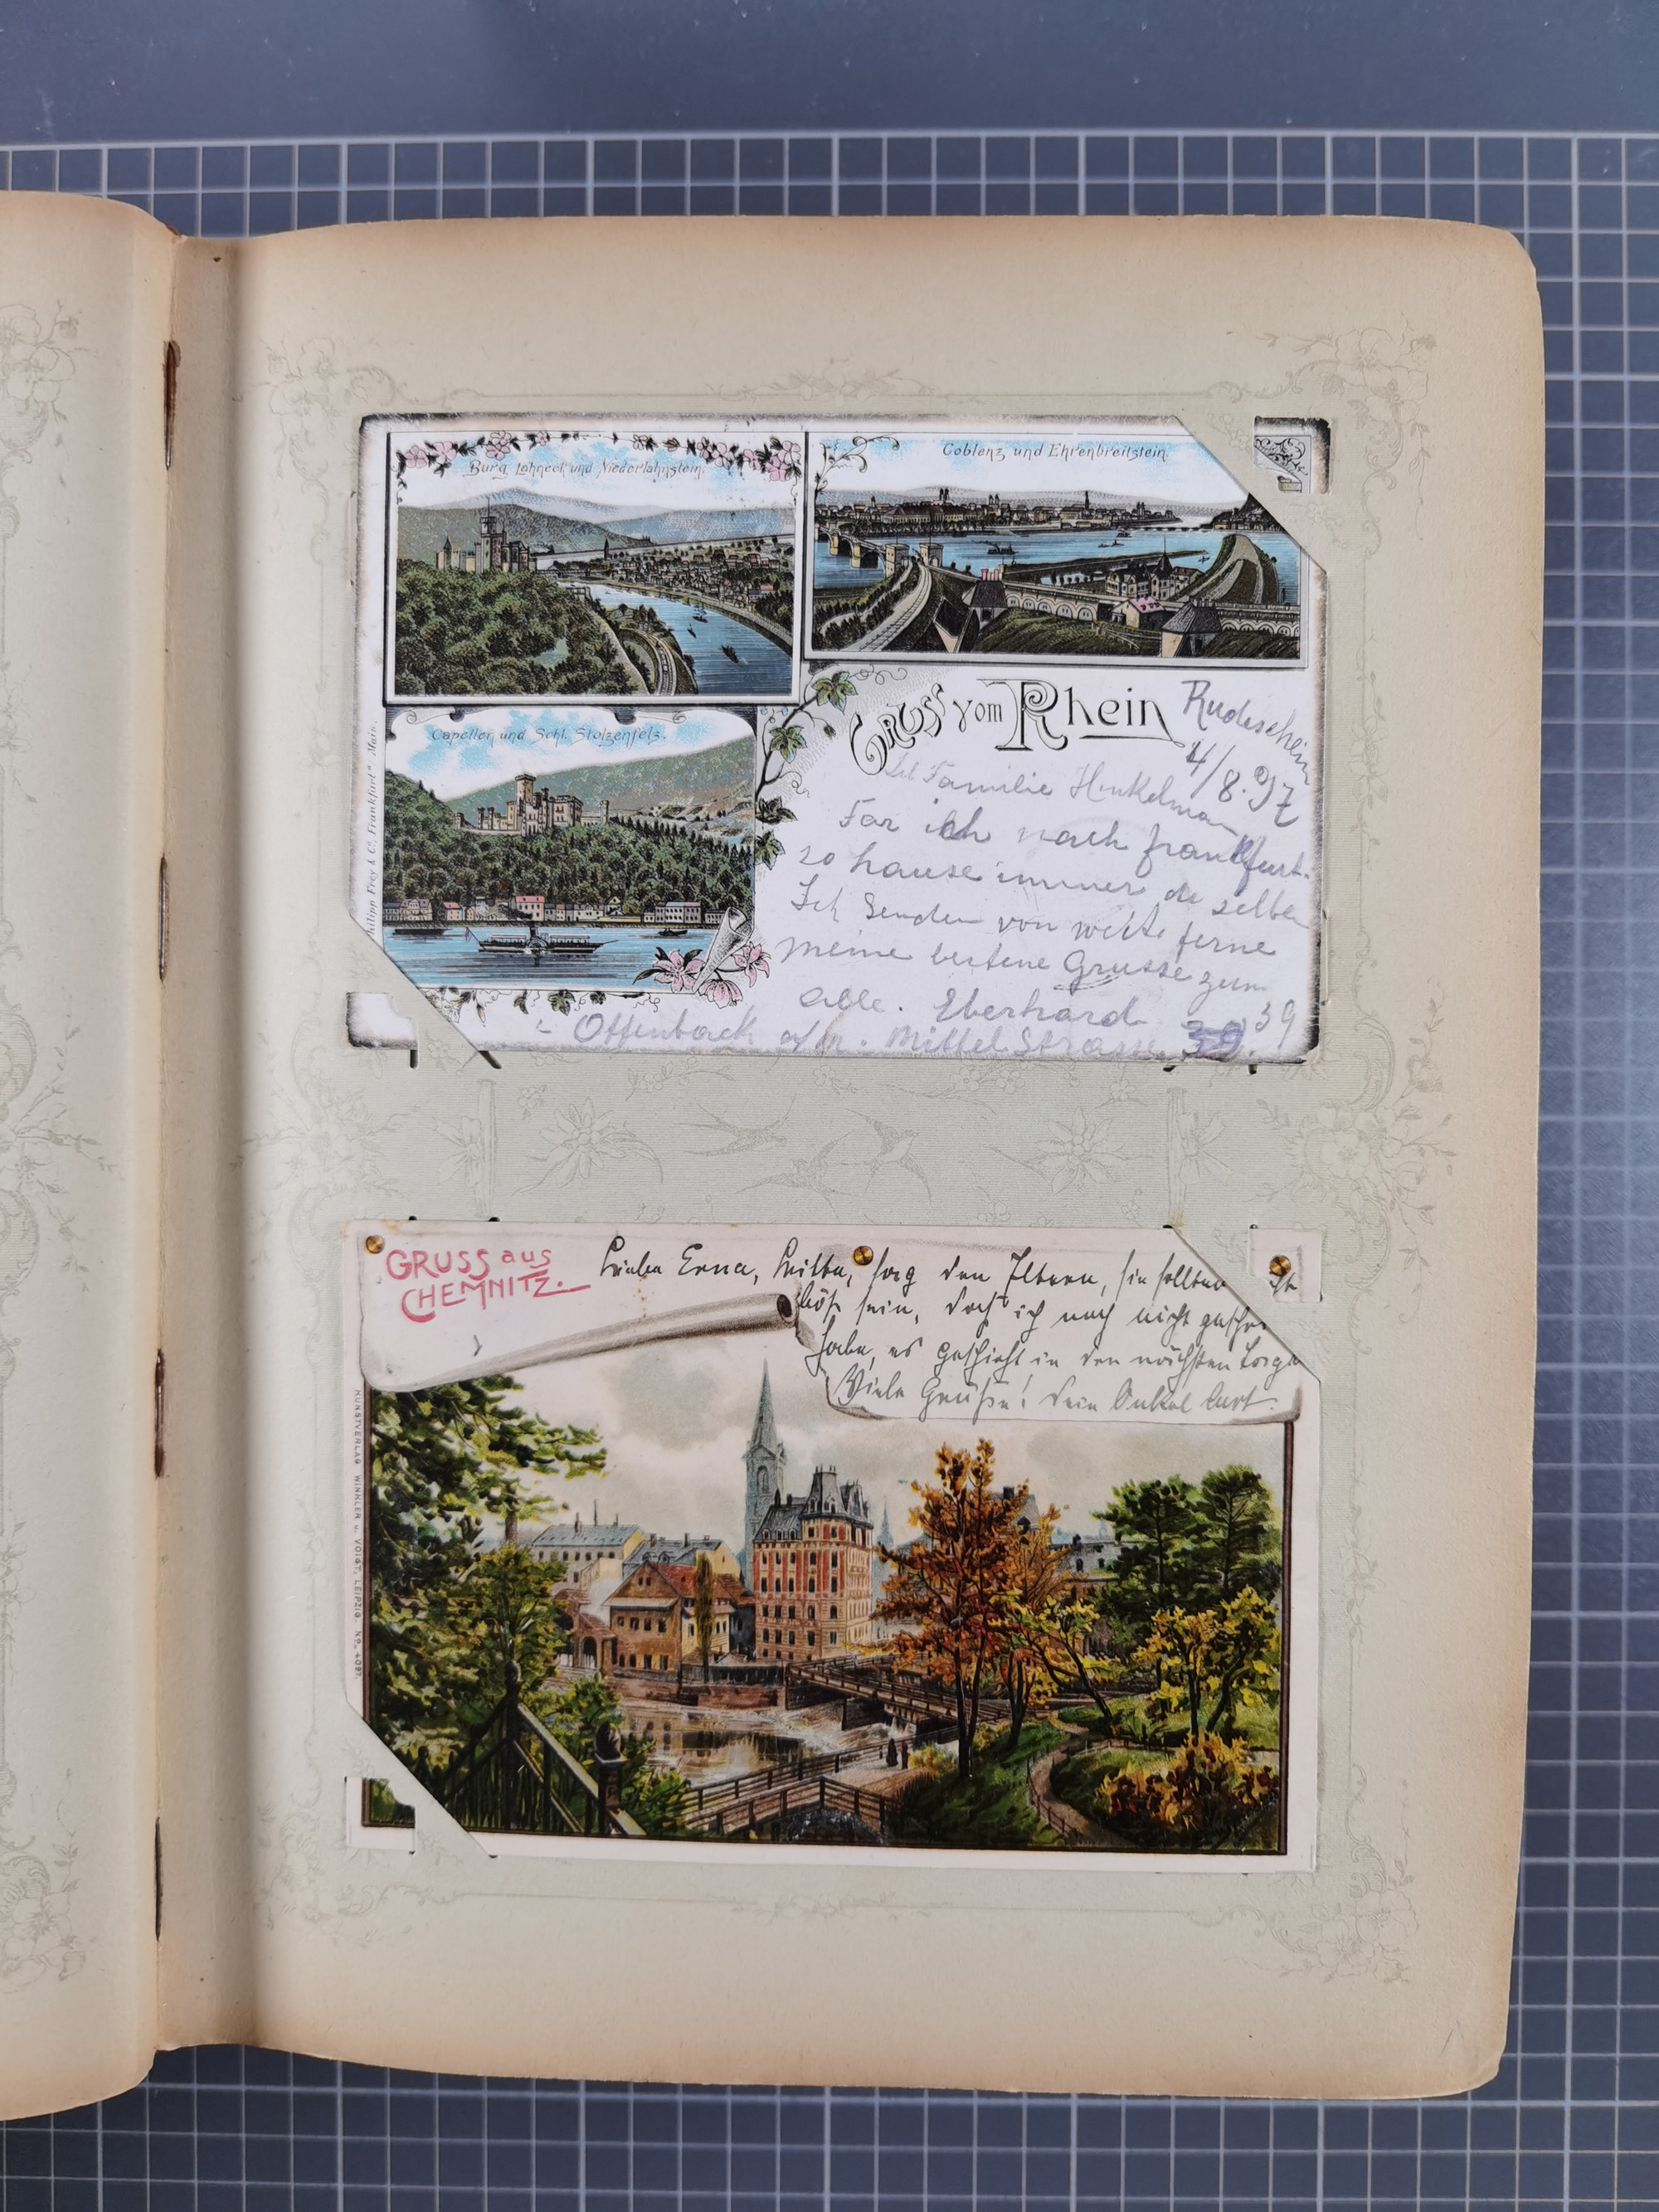 Burg Lahneck und Niederlahnstein.
Coblenz und Ehrenbreitstein.
Capellen und Schl. Stolzenfelz.
Philipp Frey & Co. Frankfurt a. Main.
Gruss vom Rhein
Rudesheim
4/8.97
Familie Hinkelman
Far ich nach frankfurt.
zo hause immer de selben
Ich Senden von weite ferne
meine bestene Grusse zum
alle. Eberhard
Offenback a/m. Mittel Strasse 39. 39
GRUSS aus
CHEMNITZ.
Liebe Erna, bitte, sag den Eltern, sie sollten
bös sein, daß ich noch nicht
habe, es geschieht in den nächsten Tagen
Viele Grüße! Dein Onkel Curt.
KUNSTVERLAG WINKLER u. VOIGT, LEIPZIG. No. 4097.